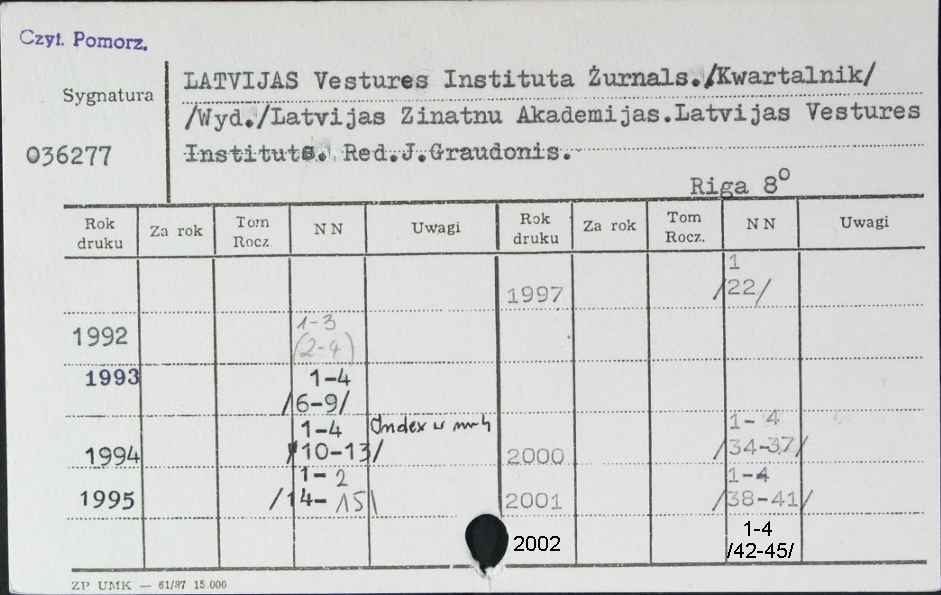 Czyt. Pomorz.
Sygnatura
036277
LATVIJAS Vestures Instituta Żurnals./Kwartalnik/
/Wyd./Latvijas Zinatnu Akademijas.Latvijas Vestures
Instituts. Red.J.Graudonis.
Riga 8°
Rok druku Za rok Tom Rocz. NN Uwagi Rok druku Za rok Tom Rocz. NN Uwagi
1997 1 /22/
1992 1-3 (2-4)
1993 1-4 /6-9/
1994 1-4 /10-13/ Index w nr 4 2000 1-4 /34-37/
1995 1-2 /14-15/ 2001 1-4 /38-41/
2002 1-4 /42-45/
ZP UMK — 61/87 15.000